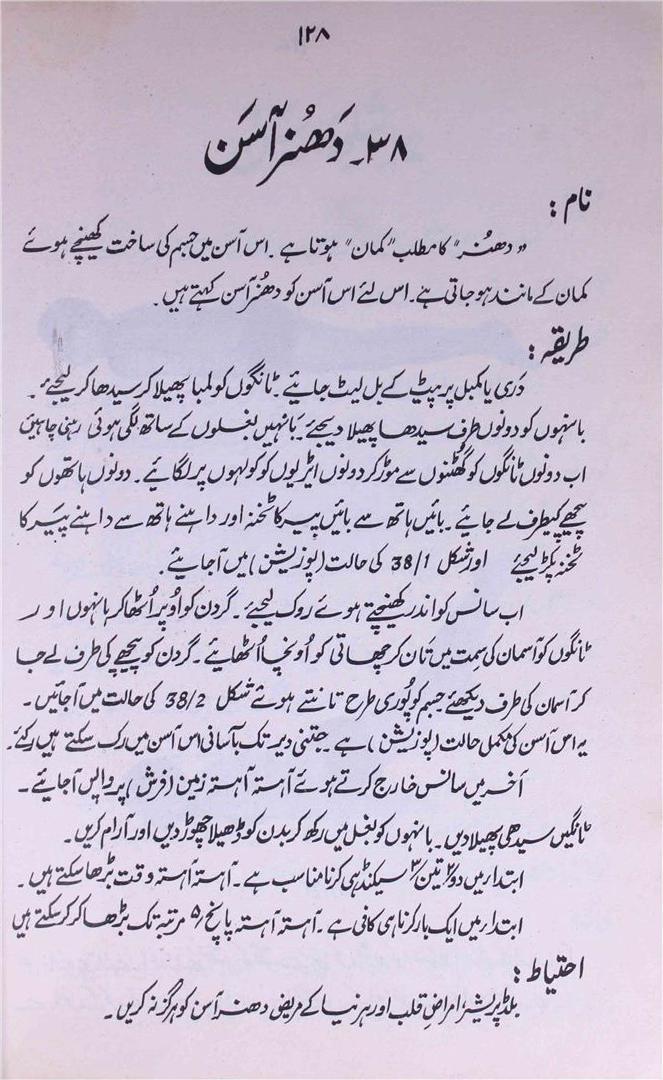 ۱۲۸
۳۸۔ دَھنُر آسَن
نام :
"دھنُر" کا مطلب "کمان" ہوتا ہے۔ اس آسن میں جسم کی ساخت کھینچے ہوئے
کمان کے مانند ہو جاتی ہے۔ اس لئے اس آسن کو دھنُر آسن کہتے ہیں۔
طریقہ :
دَری یا کمبل پر پیٹ کے بل لیٹ جائیے۔ ٹانگوں کو لمبا پھیلا کر سیدھا کر لیجئے۔
بانہوں کو دونوں طرف سیدھا پھیلا دیجئے۔ بانہیں بغلوں کے ساتھ لگی ہوئی رہنی چاہئیں
اب دونوں ٹانگوں کو گھٹنوں سے موڑ کر دونوں ایڑیوں کو کولہوں پر لگائیے۔ دونوں ہاتھوں کو
پیچھے کیطرف لے جائیے۔ بائیں ہاتھ سے بائیں پیر کا ٹخنہ اور داہنے ہاتھ سے داہنے پیر کا
ٹخنہ پکڑ لیجئے اور شکل 38/1 کی حالت (پوزیشن) میں آجائیے۔
اب سانس کو اندر کھینچتے ہوئے روک لیجئے۔ گردن کو اُوپر اُٹھا کر بانہوں اور
ٹانگوں کو آسمان کی سمت میں تان کر چھاتی کو اُونچا اُٹھائیے۔ گردن کو پیچھے کی طرف لے جا
کر آسمان کی طرف دیکھئے جسم کو پُوری طرح تانتے ہوئے شکل 38/2 کی حالت میں آجائیں۔
یہ اس آسن کی مکمل حالت (پوزیشن) ہے۔ جتنی دیر تک بآسانی اس آسن میں رک سکتے ہیں رکئے۔
آخر میں سانس خارج کرتے ہوئے آہستہ آہستہ زمین (فرش) پر واپس آجائیے۔
ٹانگیں سیدھی پھیلا دیں۔ بانہوں کو بغل میں رکھ کر بدن کو ڈھیلا چھوڑ دیں اور آرام کریں۔
ابتدا میں دو/۲ تین/۳ سیکنڈ ہی کرنا مناسب ہے۔ آہستہ آہستہ وقت بڑھا سکتے ہیں۔
ابتدا میں ایک بار کرنا ہی کافی ہے۔ آہستہ آہستہ پانچ/۵ مرتبہ تک بڑھا کر کر سکتے ہیں
احتیاط :
بلڈ پریشر، امراضِ قلب اور ہرنیا کے مریض دھنر آسن کو ہرگز نہ کریں۔